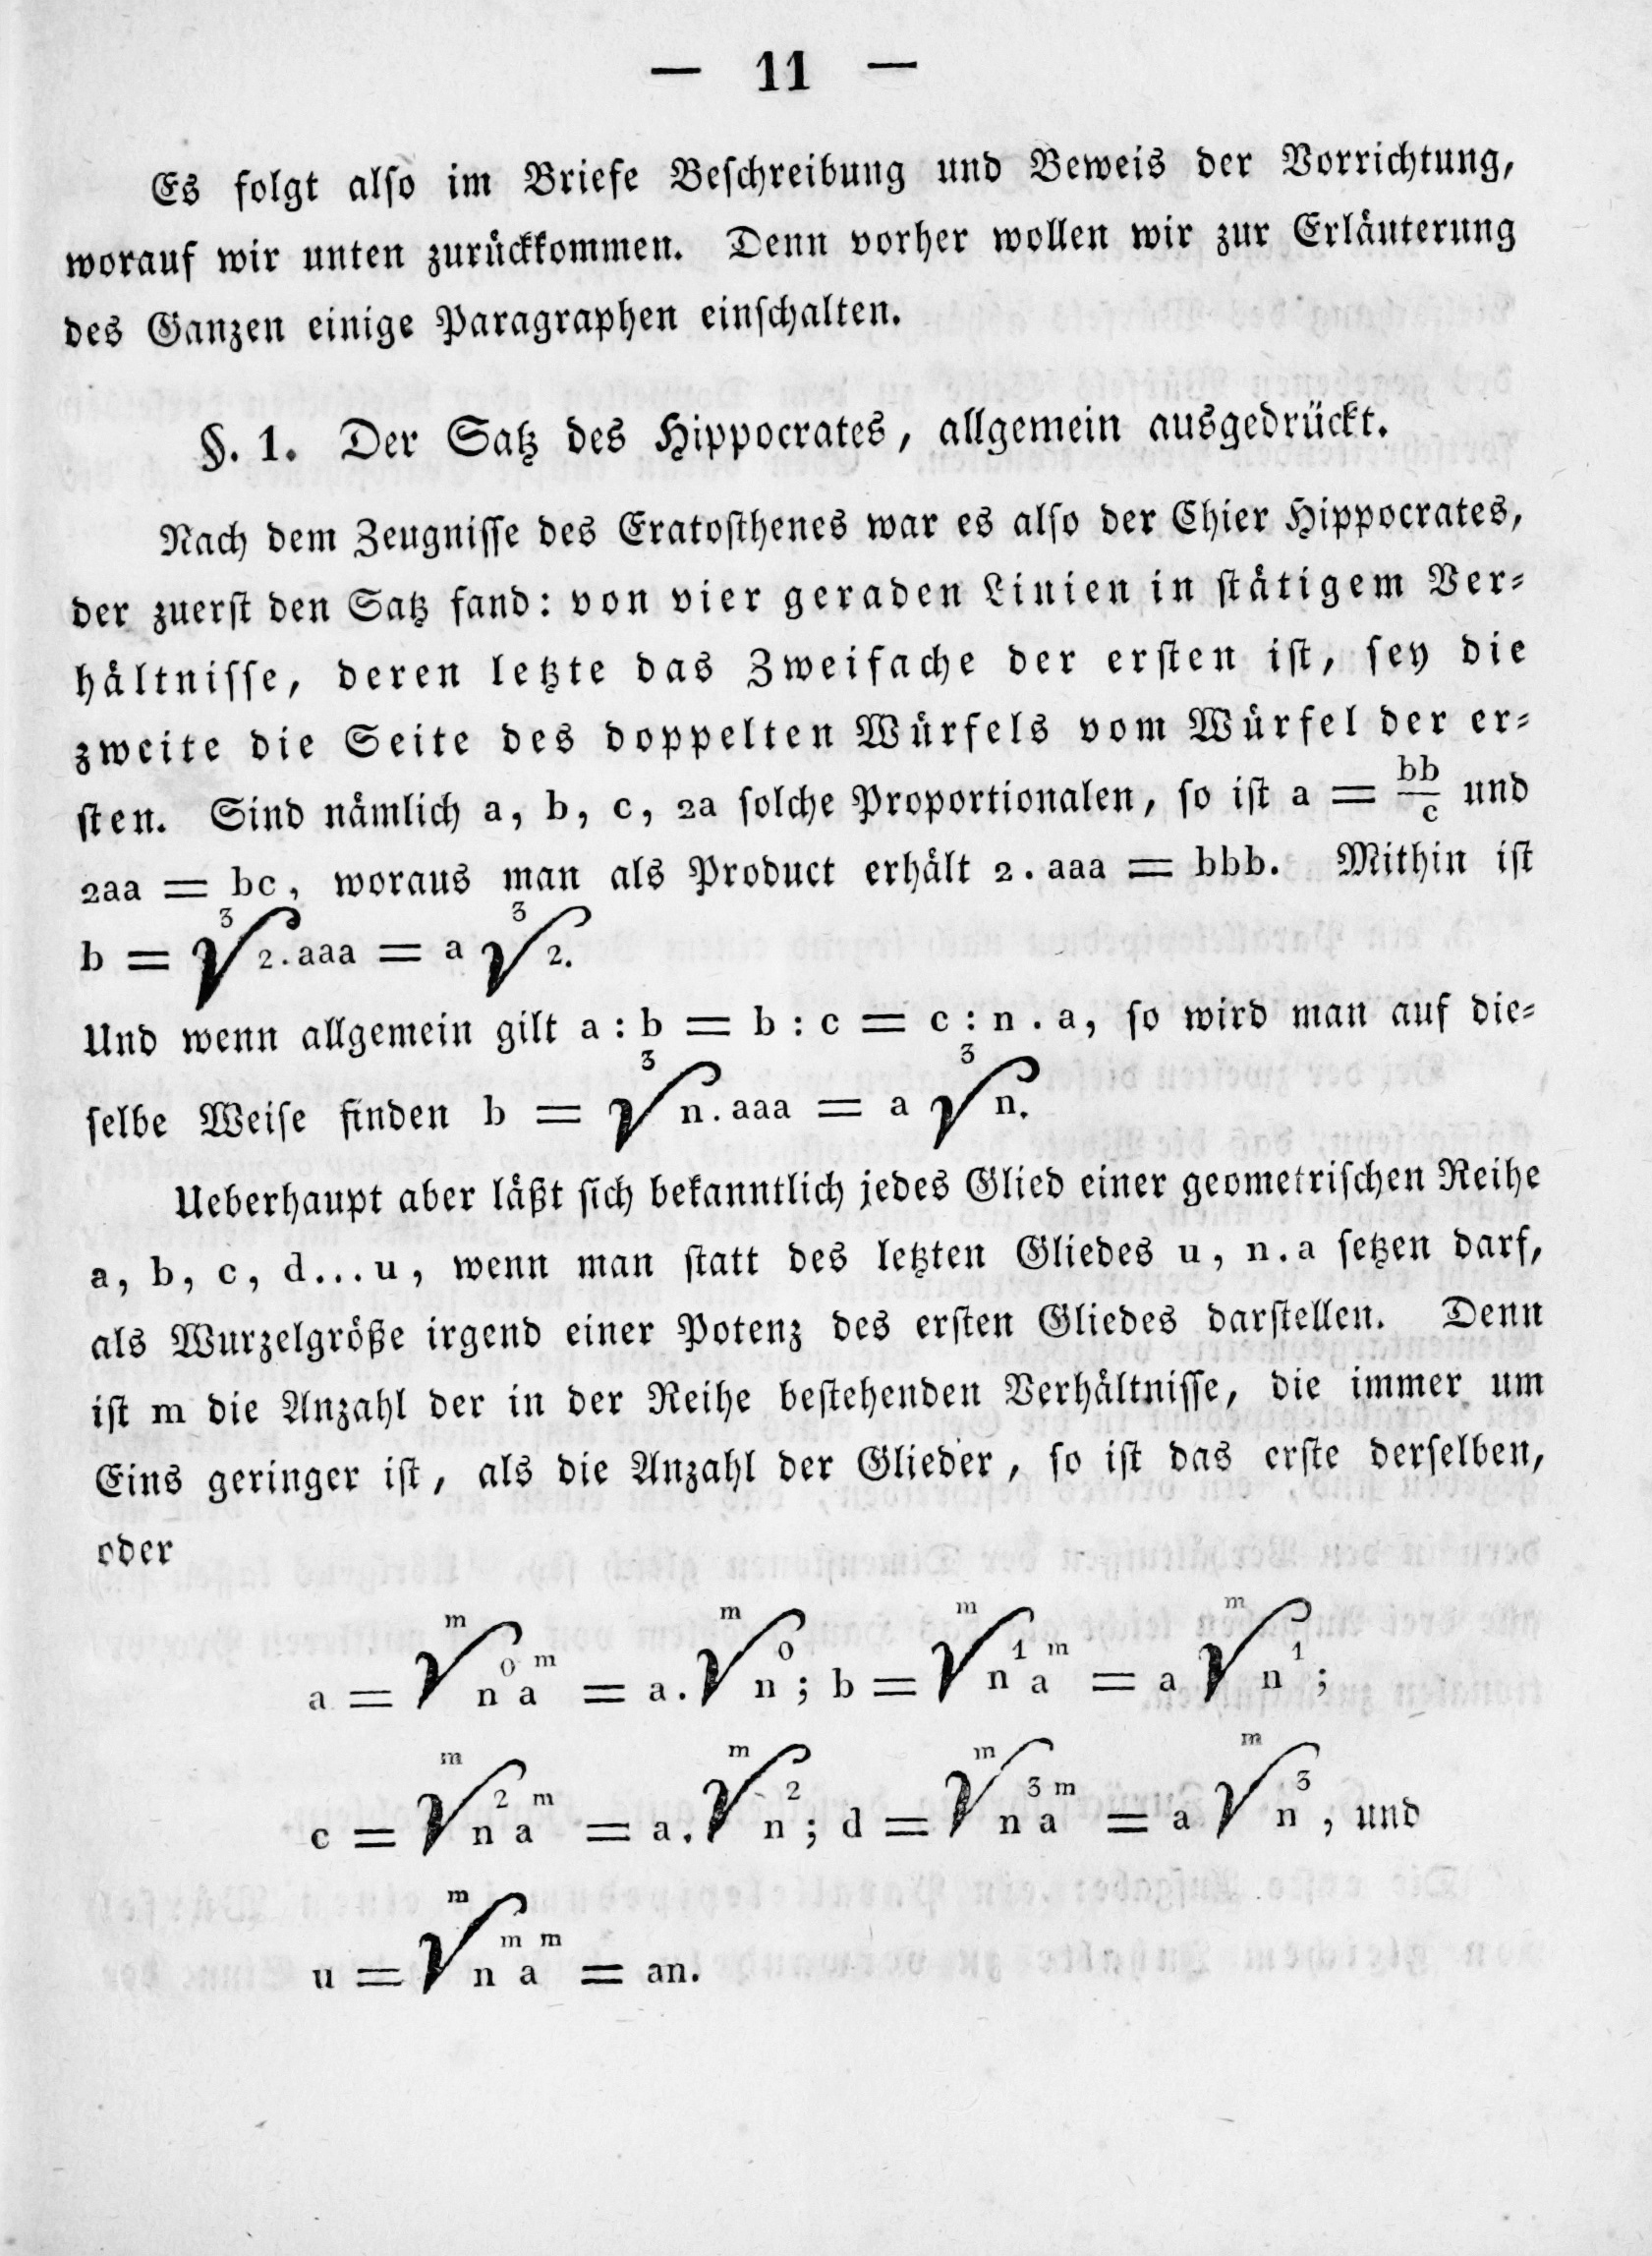 — 11 —
Es folgt also im Briefe Beschreibung und Beweis der Vorrichtung,
worauf wir unten zurückkommen. Denn vorher wollen wir zur Erläuterung
des Ganzen einige Paragraphen einschalten.
§. 1. Der Satz des Hippocrates, allgemein ausgedrückt.
Nach dem Zeugnisse des Eratosthenes war es also der Chier Hippocrates,
der zuerst den Satz fand: von vier geraden Linien in stätigem Ver-
hältnisse, deren letzte das Zweifache der ersten ist, sey die
zweite die Seite des doppelten Würfels vom Würfel der er-
sten. Sind nämlich a, b, c, 2a solche Proportionalen, so ist a = bb/c und
2aa = bc, woraus man als Product erhält 2 . aaa = bbb. Mithin ist
b = ∛2.aaa = a ∛2.
Und wenn allgemein gilt a : b = b : c = c : n . a, so wird man auf die-
selbe Weise finden b = ∛n.aaa = a ∛n.
Ueberhaupt aber läßt sich bekanntlich jedes Glied einer geometrischen Reihe
a, b, c, d...u, wenn man statt des letzten Gliedes u, n.a setzen darf,
als Wurzelgröße irgend einer Potenz des ersten Gliedes darstellen. Denn
ist m die Anzahl der in der Reihe bestehenden Verhältnisse, die immer um
Eins geringer ist, als die Anzahl der Glieder, so ist das erste derselben,
oder
a = ᵐ√n⁰aᵐ = a.ᵐ√n⁰; b = ᵐ√n¹aᵐ = a ᵐ√n¹;
c = ᵐ√n²aᵐ = a.ᵐ√n²; d = ᵐ√n³aᵐ = a ᵐ√n³, und
u = ᵐ√nᵐaᵐ = an.